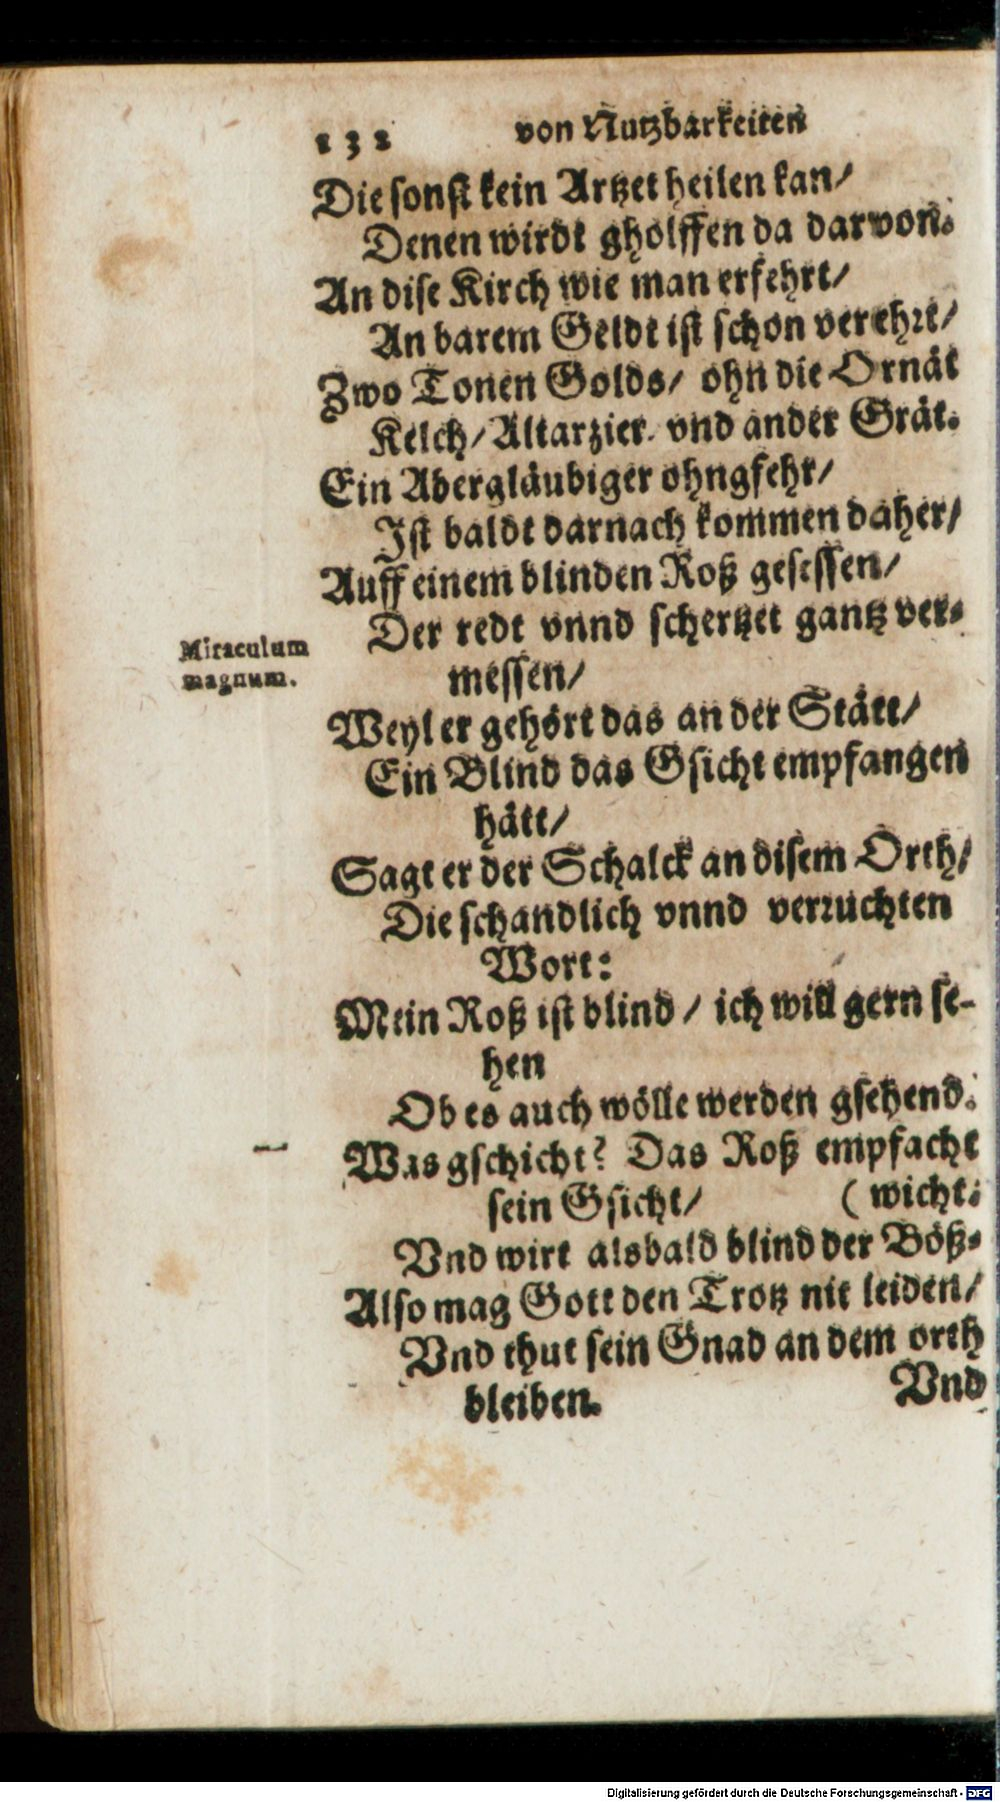 132 von Nutzbarkeiten
Die sonst kein Artzet heilen kan/
Denen wirdt gholffen da darvon.
An dise Kirch wie man erfehrt/
An barem Geldt ist schon verehrt/
Zwo Tonen Golds/ ohn die Ornät
Kelch/ Altarzier. vnd ander Grät.
Ein Abergläubiger ohngfehr/
Ist baldt darnach kommen daher/
Auff einem blinden Roß gesessen/
Der redt vnnd schertzet gantz ver-
messen/
Miraculum
magnum.
Weyl er gehört das an der Stätt/
Ein Blind das Gsicht empfangen
hätt/
Sagt er der Schalck an disem Orth/
Die schandlich vnnd verruchten
Wort:
Mein Roß ist blind / ich will gern se-
hen
Ob es auch wölle werden gsehend.
Was gschicht? Das Roß empfacht
sein Gsicht/ (wicht.
Vnd wirt alsbald blind der Böß-
Also mag Gott den Trotz nit leiden/
Vnd thut sein Gnad an dem orth
bleiben. Vnd
Digitalisierung gefördert durch die Deutsche Forschungsgemeinschaft - DFG